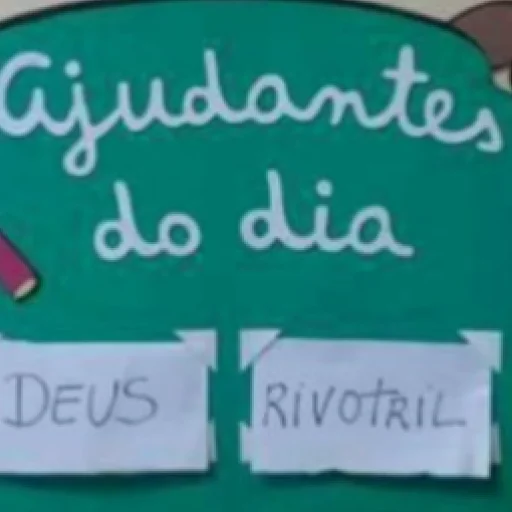 ajudantes
do dia
DEUS RIVOTRIL